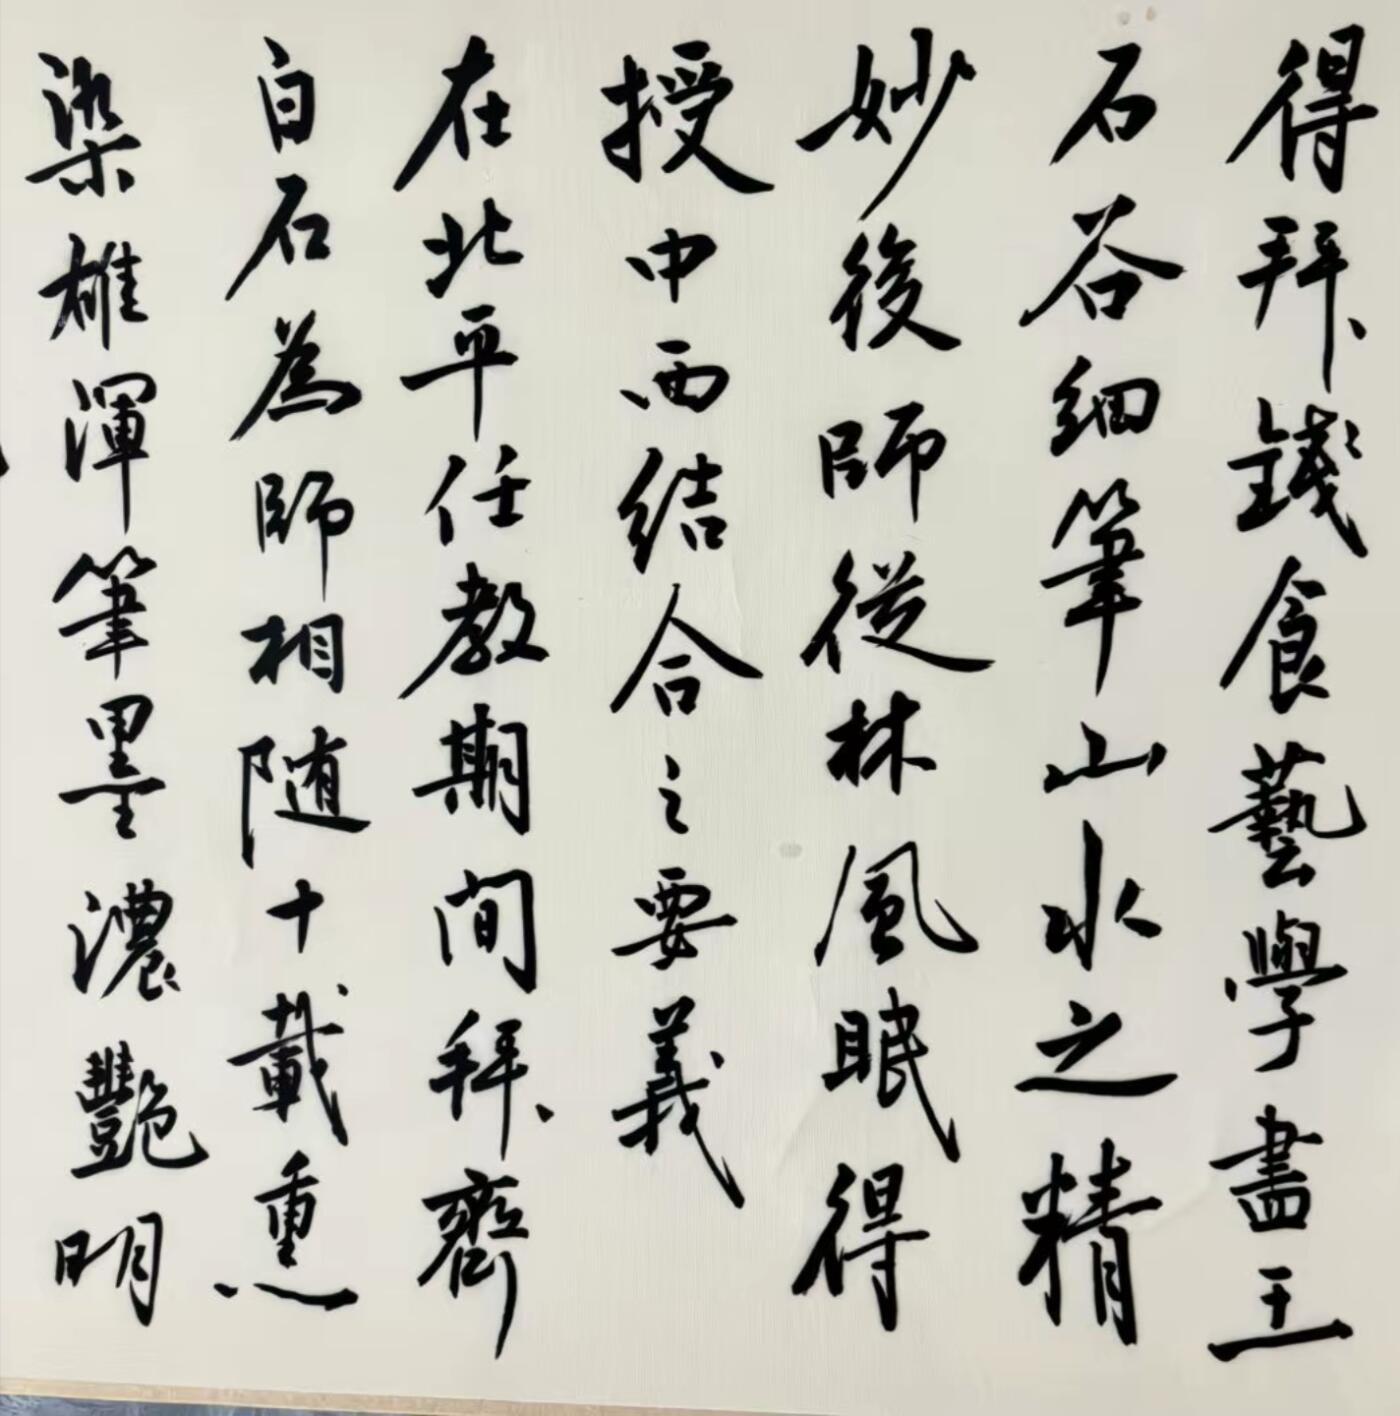 得拜錢食藝學盡王
石谷细筆山水之精
妙後師從林風眠得
授中西结合之要義
在北平任教期间拜齊
白石為師相随十載熏
染雄渾筆墨濃艷明